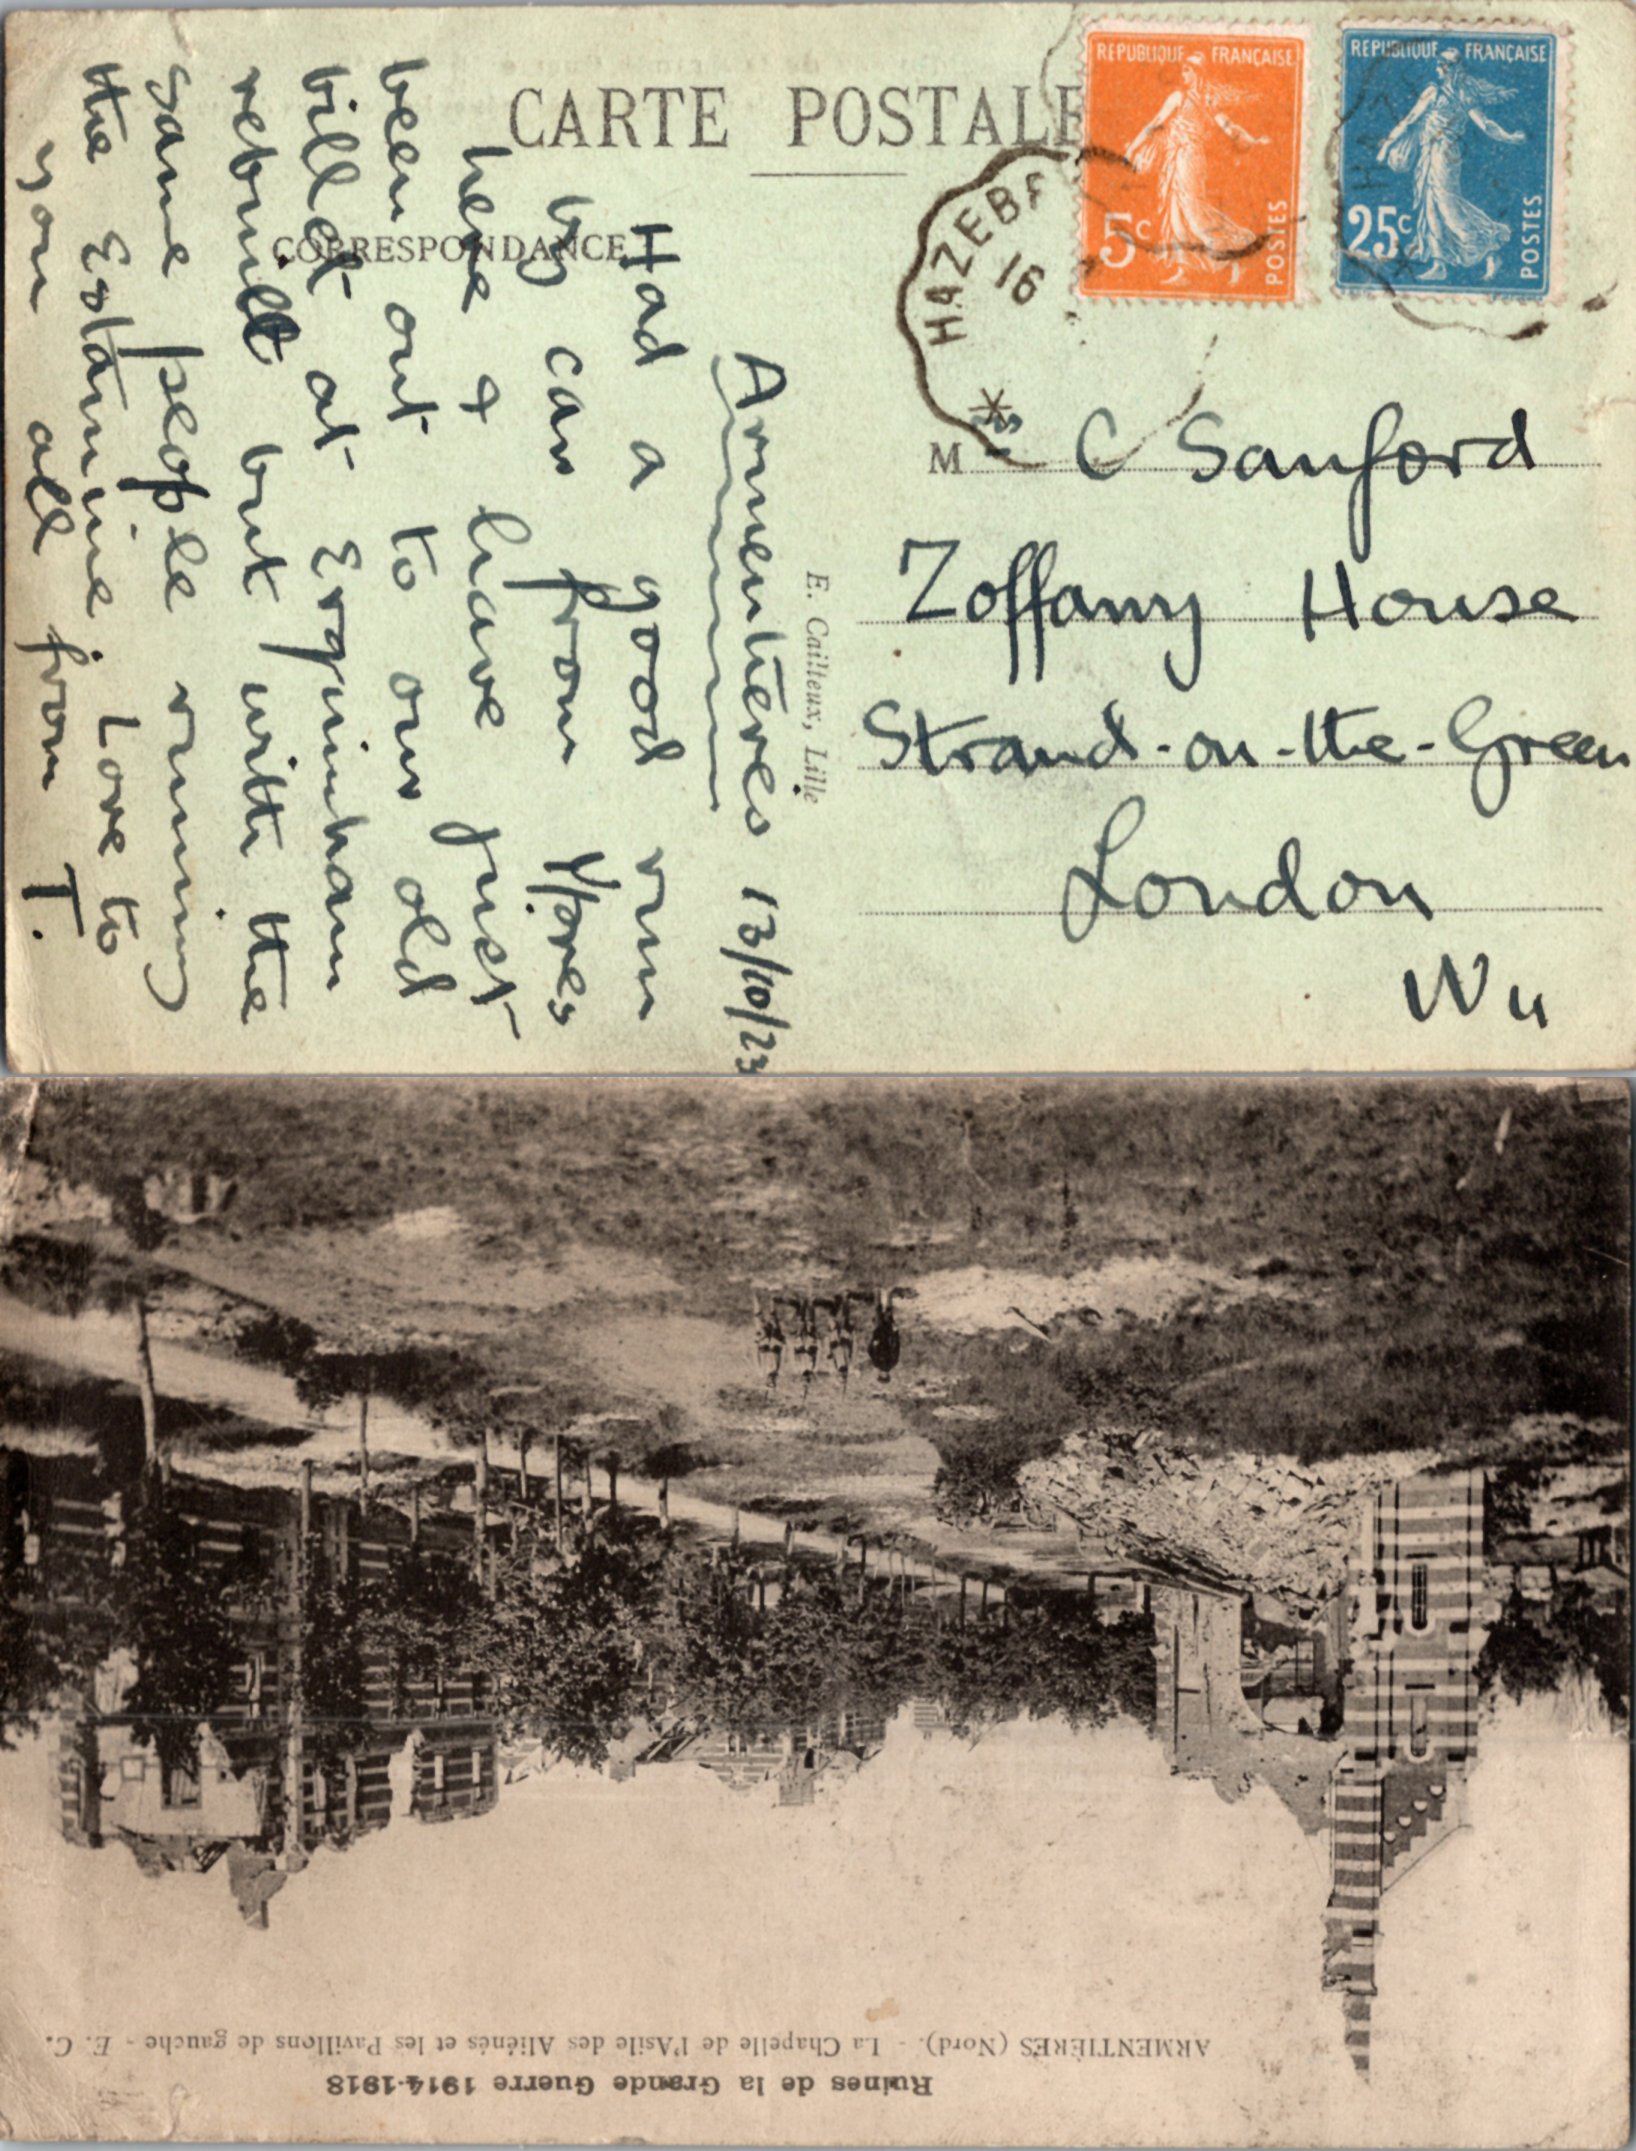 CARTE POSTALE
CORRESPONDANCE
REPUBLIQUE FRANÇAISE
5c
POSTES
REPUBLIQUE FRANÇAISE
25c
POSTES
HAZEBR
16
E. Cailleux, Lille
Armentières 13/10/23
Had a good run
by car from Ypres
here & have just
been out to our old
billet at Erquinham
rebuilt but with the
same people running
the Estamine. Love to
you all from T.
Mrs C Sanford
Zoffany House
Strand-on-the-Green
London
W4
Ruines de la Grande Guerre 1914-1918
ARMENTIÈRES (Nord). - La Chapelle de l'Asile des Aliénés et les Pavillons de gauche - E. C.